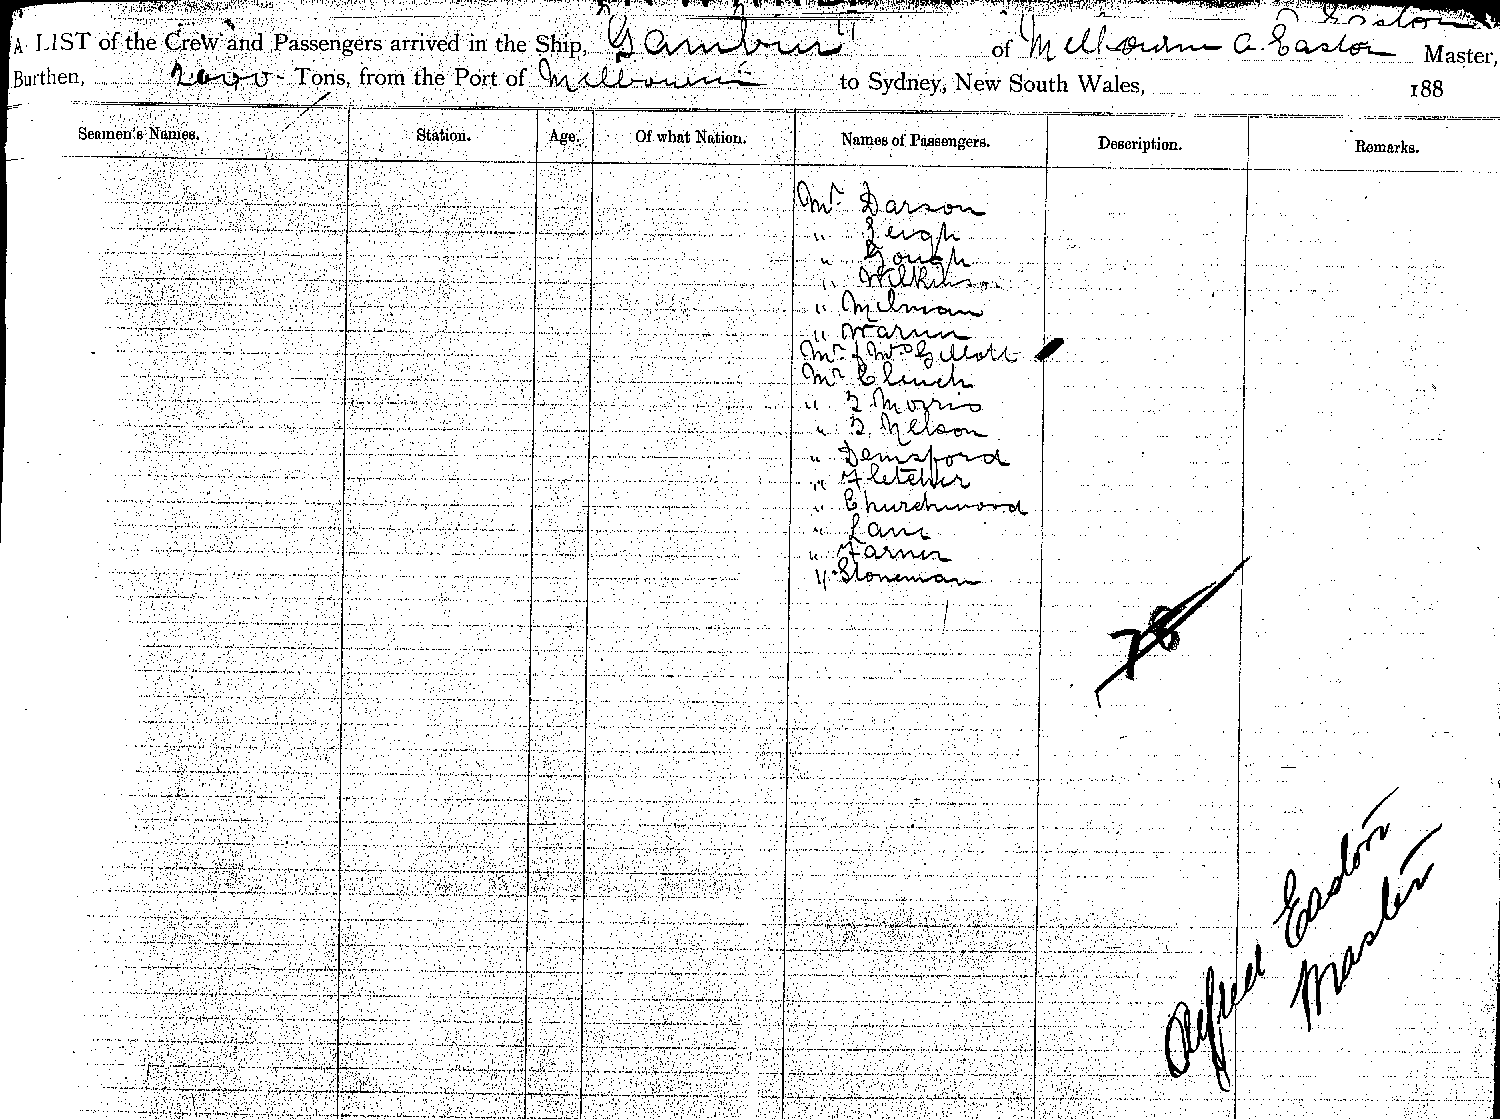 A LIST of the Crew and Passengers arrived in the Ship, "Gambier" of Melbourne A. Easton Master,
Burthen, 2000 Tons, from the Port of Melbourne to Sydney, New South Wales, 188
Seamen's Names. Station. Age. Of what Nation. Names of Passengers. Description. Remarks.
Mr Darson
" Leigh
" Gough
" Wilkinson
" Milman
" Warren
Mr & Mrs Gillott
Mr Clinch
" F Morris
" F Nelson
" Demsford
" Fletcher
" Churchwood
" Lane
" Farner
" Stoneman
78
Alfred Easton
Master